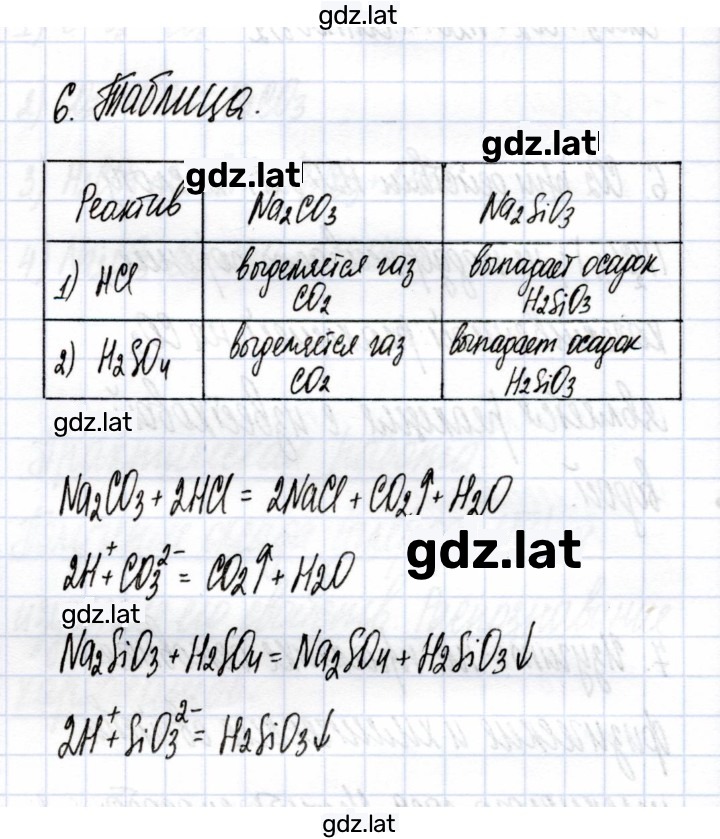 gdz.lat
6. Таблица.
gdz.lat
gdz.lat
Реактив Na2CO3 Na2SiO3
1) HCl выделяется газ CO2 выпадает осадок H2SiO3
2) H2SO4 выделяется газ CO2 выпадает осадок H2SiO3
gdz.lat
Na2CO3 + 2HCl = 2NaCl + CO2↑ + H2O
gdz.lat
2H⁺ + CO3²⁻ = CO2↑ + H2O
gdz.lat
Na2SiO3 + H2SO4 = Na2SO4 + H2SiO3↓
2H⁺ + SiO3²⁻ = H2SiO3↓
gdz.lat